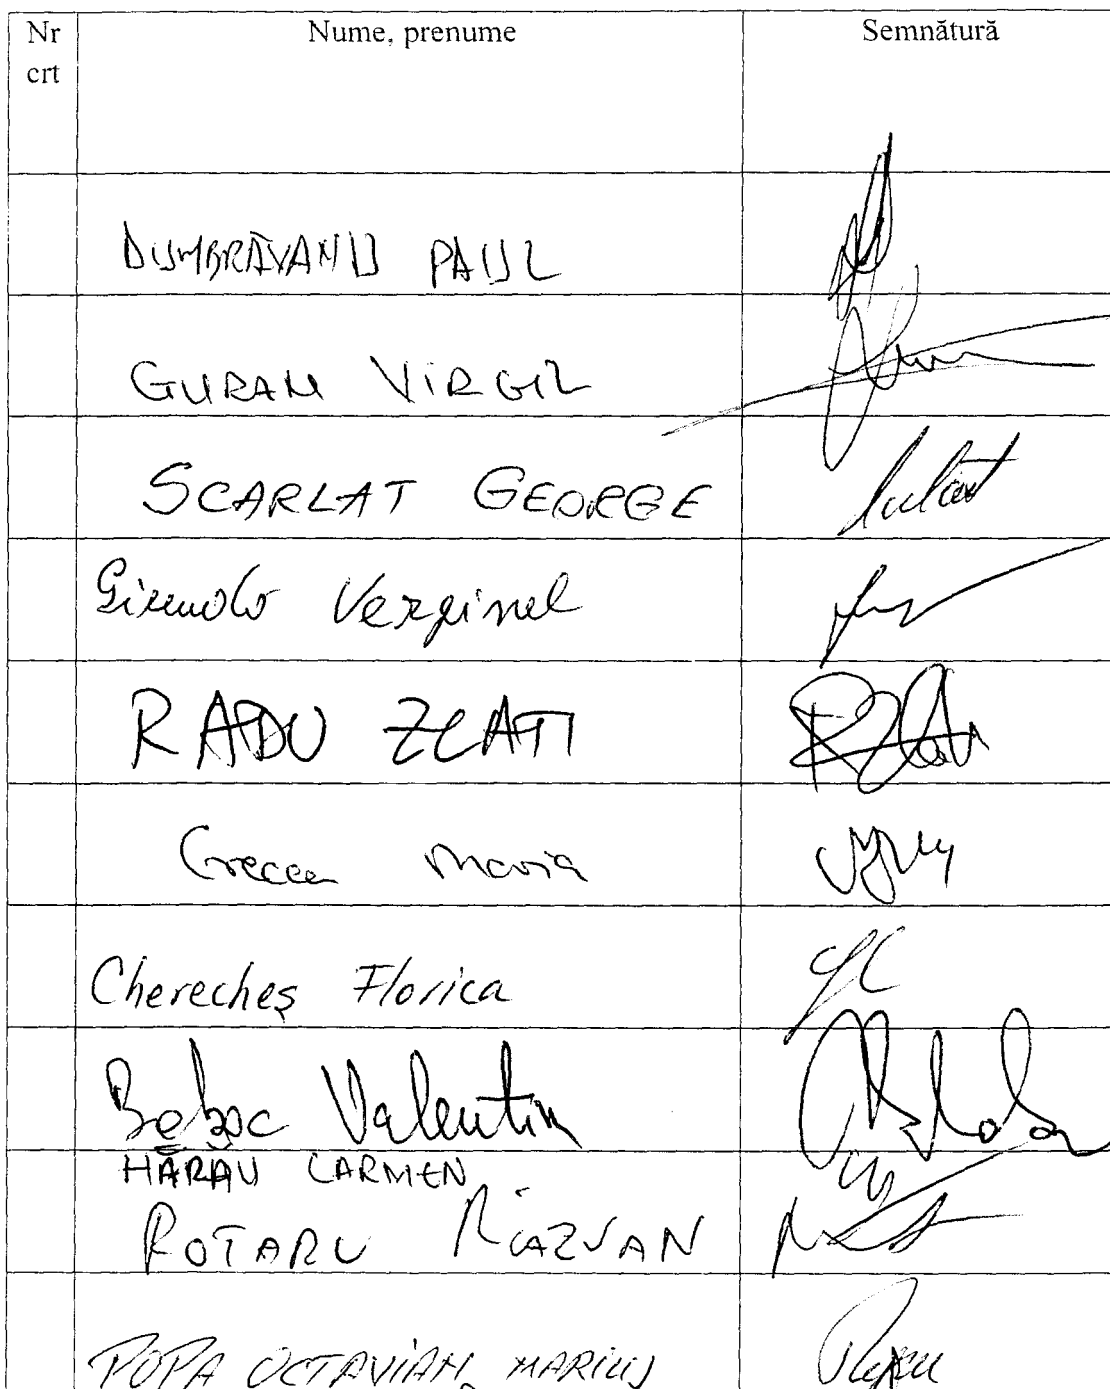 Nr Nume, prenume Semnătură
crt
DUMBRĂVANU PAUL
GURAN VIRGIL
SCARLAT GEORGE
Verginel
RADU ZLATI
Grecea Maria
Cherecheș Florica
Boboc Valentin
HĂRĂU CARMEN
ROTARU RĂZVAN
POPA OCTAVIAN MARIUS